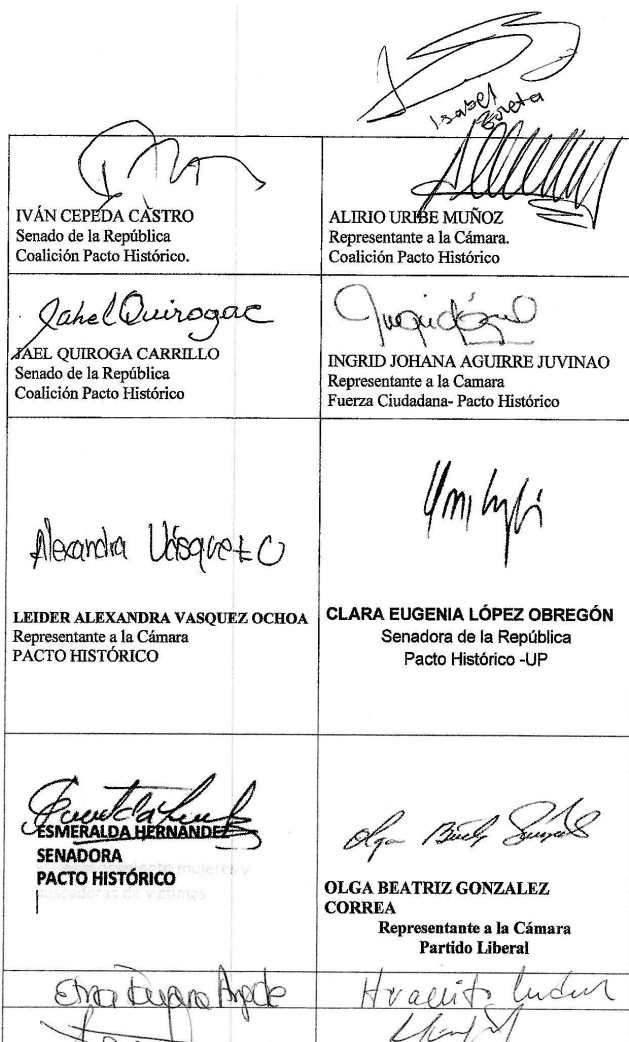 Isabel
Zuleta
IVÁN CEPEDA CASTRO
Senado de la República
Coalición Pacto Histórico.
ALIRIO URIBE MUÑOZ
Representante a la Cámara.
Coalición Pacto Histórico
Jahel Quiroga C
JAEL QUIROGA CARRILLO
Senado de la República
Coalición Pacto Histórico
INGRID JOHANA AGUIRRE JUVINAO
Representante a la Camara
Fuerza Ciudadana- Pacto Histórico
Alexandra Vásquez O
LEIDER ALEXANDRA VASQUEZ OCHOA
Representante a la Cámara
PACTO HISTÓRICO
CLARA EUGENIA LÓPEZ OBREGÓN
Senadora de la República
Pacto Histórico -UP
ESMERALDA HERNÁNDEZ
SENADORA
PACTO HISTÓRICO
mujeres y
buscadoras de víctimas
Olga Beatriz González
OLGA BEATRIZ GONZALEZ
CORREA
Representante a la Cámara
Partido Liberal